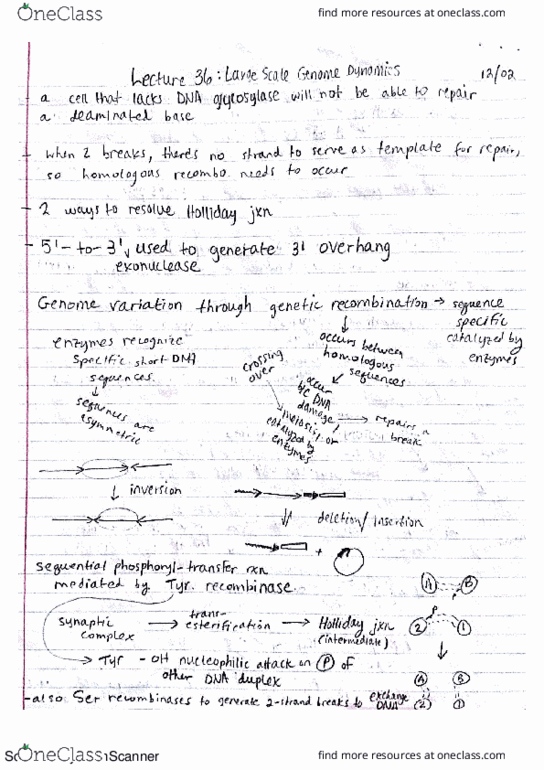 OneClass
find more resources at oneclass.com
Lecture 36: Large Scale Genome Dynamics
12/02
- a cell that lacks DNA glycosylase will not be able to repair
a deaminated base
- when 2 breaks, there's no strand to serve as template for repair,
so homologous recombo needs to occur
- 2 ways to resolve Holliday jxn
- 5'-to-3' used to generate 3' overhang
exonuclease
Genome variation through genetic recombination → sequence
specific
catalyzed by
enzymes
enzymes recognize
specific short DNA
sequences
↓
sequences are
asymmetric
↓
occurs between
homologous
sequences
crossing
over
occur
b/c DNA
damage,
meiosis, or
catalyzed by
enzymes
→ repairs a
break
↓ inversion
deletion/insertion
+
sequential phosphoryl-transfer rxn
mediated by Tyr. recombinase
A B
synaptic
complex
→
trans-
esterification
→ Holliday jxn
(intermediate)
P
2 1
↓
→ Tyr -OH nucleophilic attack on P of
other DNA duplex
A B
2 1
-also Ser recombinases to generate 2-strand breaks to exchange
DNA
OneClass
Scanner
find more resources at oneclass.com